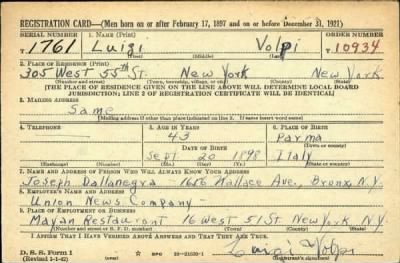 REGISTRATION CARD—(Men born on or after February 17, 1897 and on or before December 31, 1921)
SERIAL NUMBER 1. NAME (Print) ORDER NUMBER
T 1761 Luigi Volpi T 10934
(First) (Middle) (Last)
2. PLACE OF RESIDENCE (Print)
305 West 55th St. New York New York
(Number and street) (Town, township, village, or city) (County) (State)
[THE PLACE OF RESIDENCE GIVEN ON THE LINE ABOVE WILL DETERMINE LOCAL BOARD
JURISDICTION; LINE 2 OF REGISTRATION CERTIFICATE WILL BE IDENTICAL]
3. MAILING ADDRESS
Same
[Mailing address if other than place indicated on line 2. If same insert word same]
4. TELEPHONE 5. AGE IN YEARS 6. PLACE OF BIRTH
43 Parma
DATE OF BIRTH (Town or county)
Sept 20 1898 Italy
(Exchange) (Number) (Mo.) (Day) (Yr.) (State or country)
7. NAME AND ADDRESS OF PERSON WHO WILL ALWAYS KNOW YOUR ADDRESS
Joseph Dallanegra - 1656 Wallace Ave., Bronx, N.Y.
8. EMPLOYER'S NAME AND ADDRESS
Union News Company -
9. PLACE OF EMPLOYMENT OR BUSINESS
Mayan Restaurant 16 West 51 St New York N.Y.
(Number and street or R. F. D. number) (Town) (County) (State)
I AFFIRM THAT I HAVE VERIFIED ABOVE ANSWERS AND THAT THEY ARE TRUE.
D. S. S. Form 1
(Revised 1-1-42) GPO 16-21630-1 Luigi Volpi
(Registrant's signature)